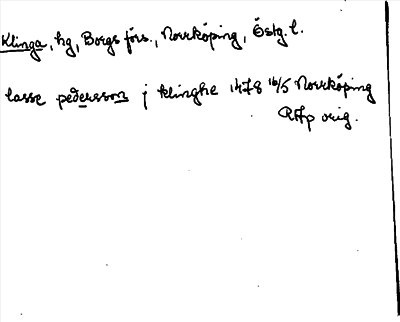 Klinga, hg, Borgs förs., Norrköping, Östg. l.
lasse pedersson j klinghe 1478 16/5 Norrköping
RAp orig.